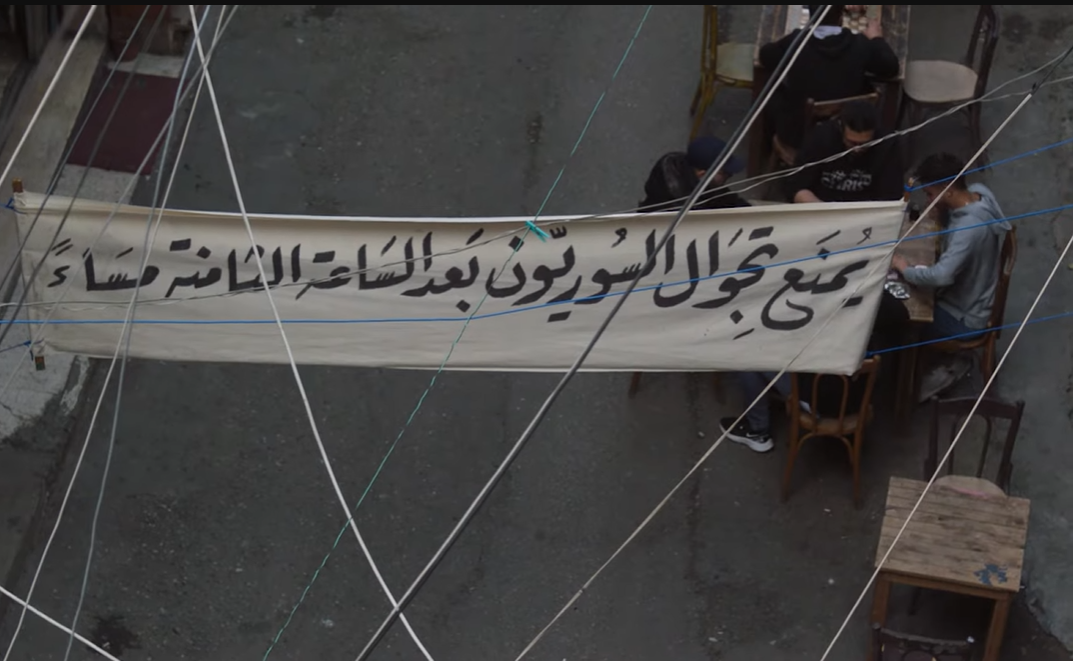 يُمنَع تجَوَال السُوريّون بَعد السَاعة الثَامنة مسَاءً